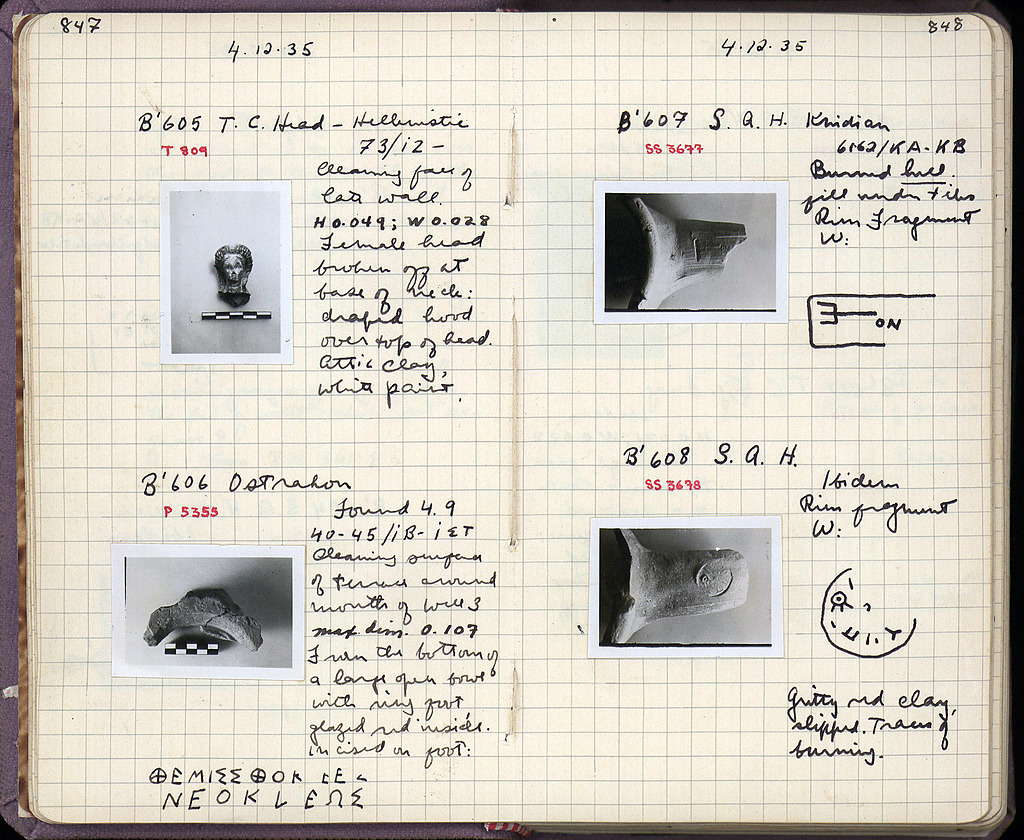 847
4.12.35
B'605 T.C. Head - Hellenistic
T 809
73/12 -
Cleaning face of
late wall.
H 0.049; W 0.028
Female head
broken off at
base of neck:
draped hood
over top of head.
Attic clay,
white paint.
B'606 Ostrakon
P 5355
Found 4.9
40-45/
Cleaning surface
of terrace around
mouth of well 3
max. dim. 0.107
From the bottom of
a large open bowl
with ring foot,
glazed red inside.
incised on foot:
ΘΕΜΙΣΣΘΟΚ
ΝΕΟΚLΕ
848
4.12.35
B'607 S.A.H. Knidian
SS 3677
/KA-KB
Burned
fill under tiles
Rim Fragment
W:
ON
B'608 S.A.H.
SS 3678
Ibidem
Rim fragment
W:
Gritty red clay,
slipped. Traces of
burning.